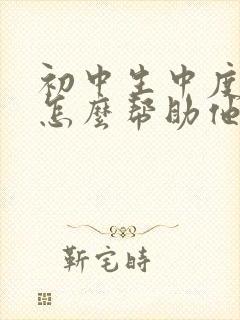 初中生中度
怎麼帮助他
靳宅時